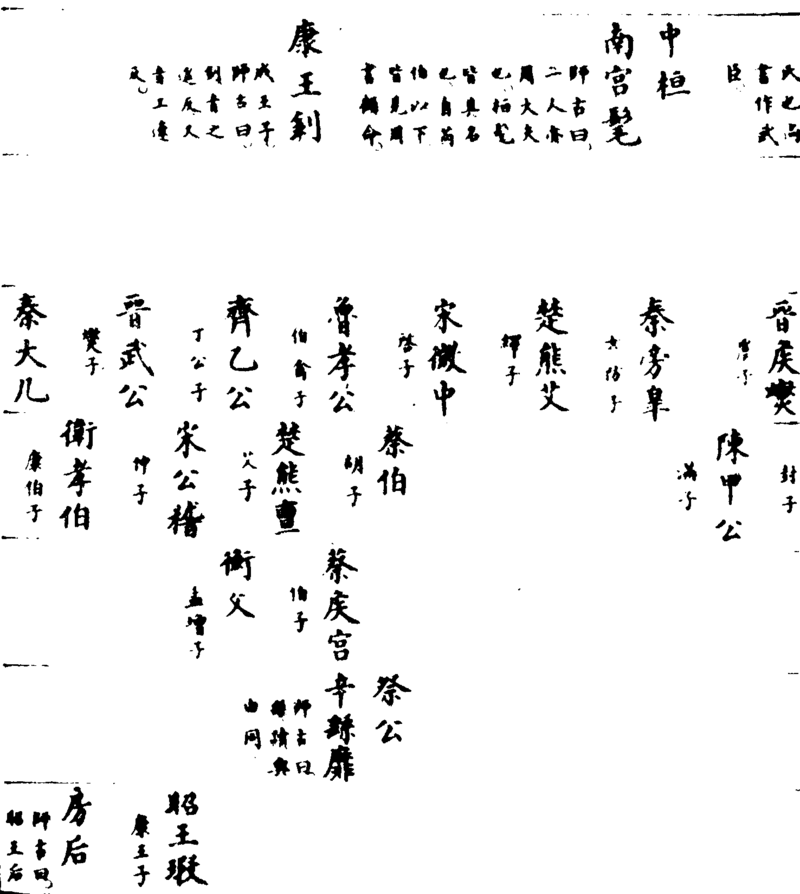 氏也尚
書作武
臣
中桓
南宮髦
師古曰
二人亦
周大夫
也桓髦
皆其名
也自芮
伯以下
皆見周
書顧命
康王釗
成王子
師古曰
釗音之
遙反又
音工遼
反
晉侯燮
虞子
秦旁皋
女防子
楚熊艾
繹子
宋微中
啓子
魯孝公
伯禽子
齊乙公
丁公子
晉武公
燮子
秦大几
封子
陳甲公
滿子
蔡伯
胡子
楚熊亶
乂子
宋公稽
仲子
衛孝伯
康伯子
蔡侯宮
伯子
衡父
孟增子
祭公
辛繇靡
師古曰
繇讀與
由同
昭王瑕
康王子
房后
師古曰
昭王后